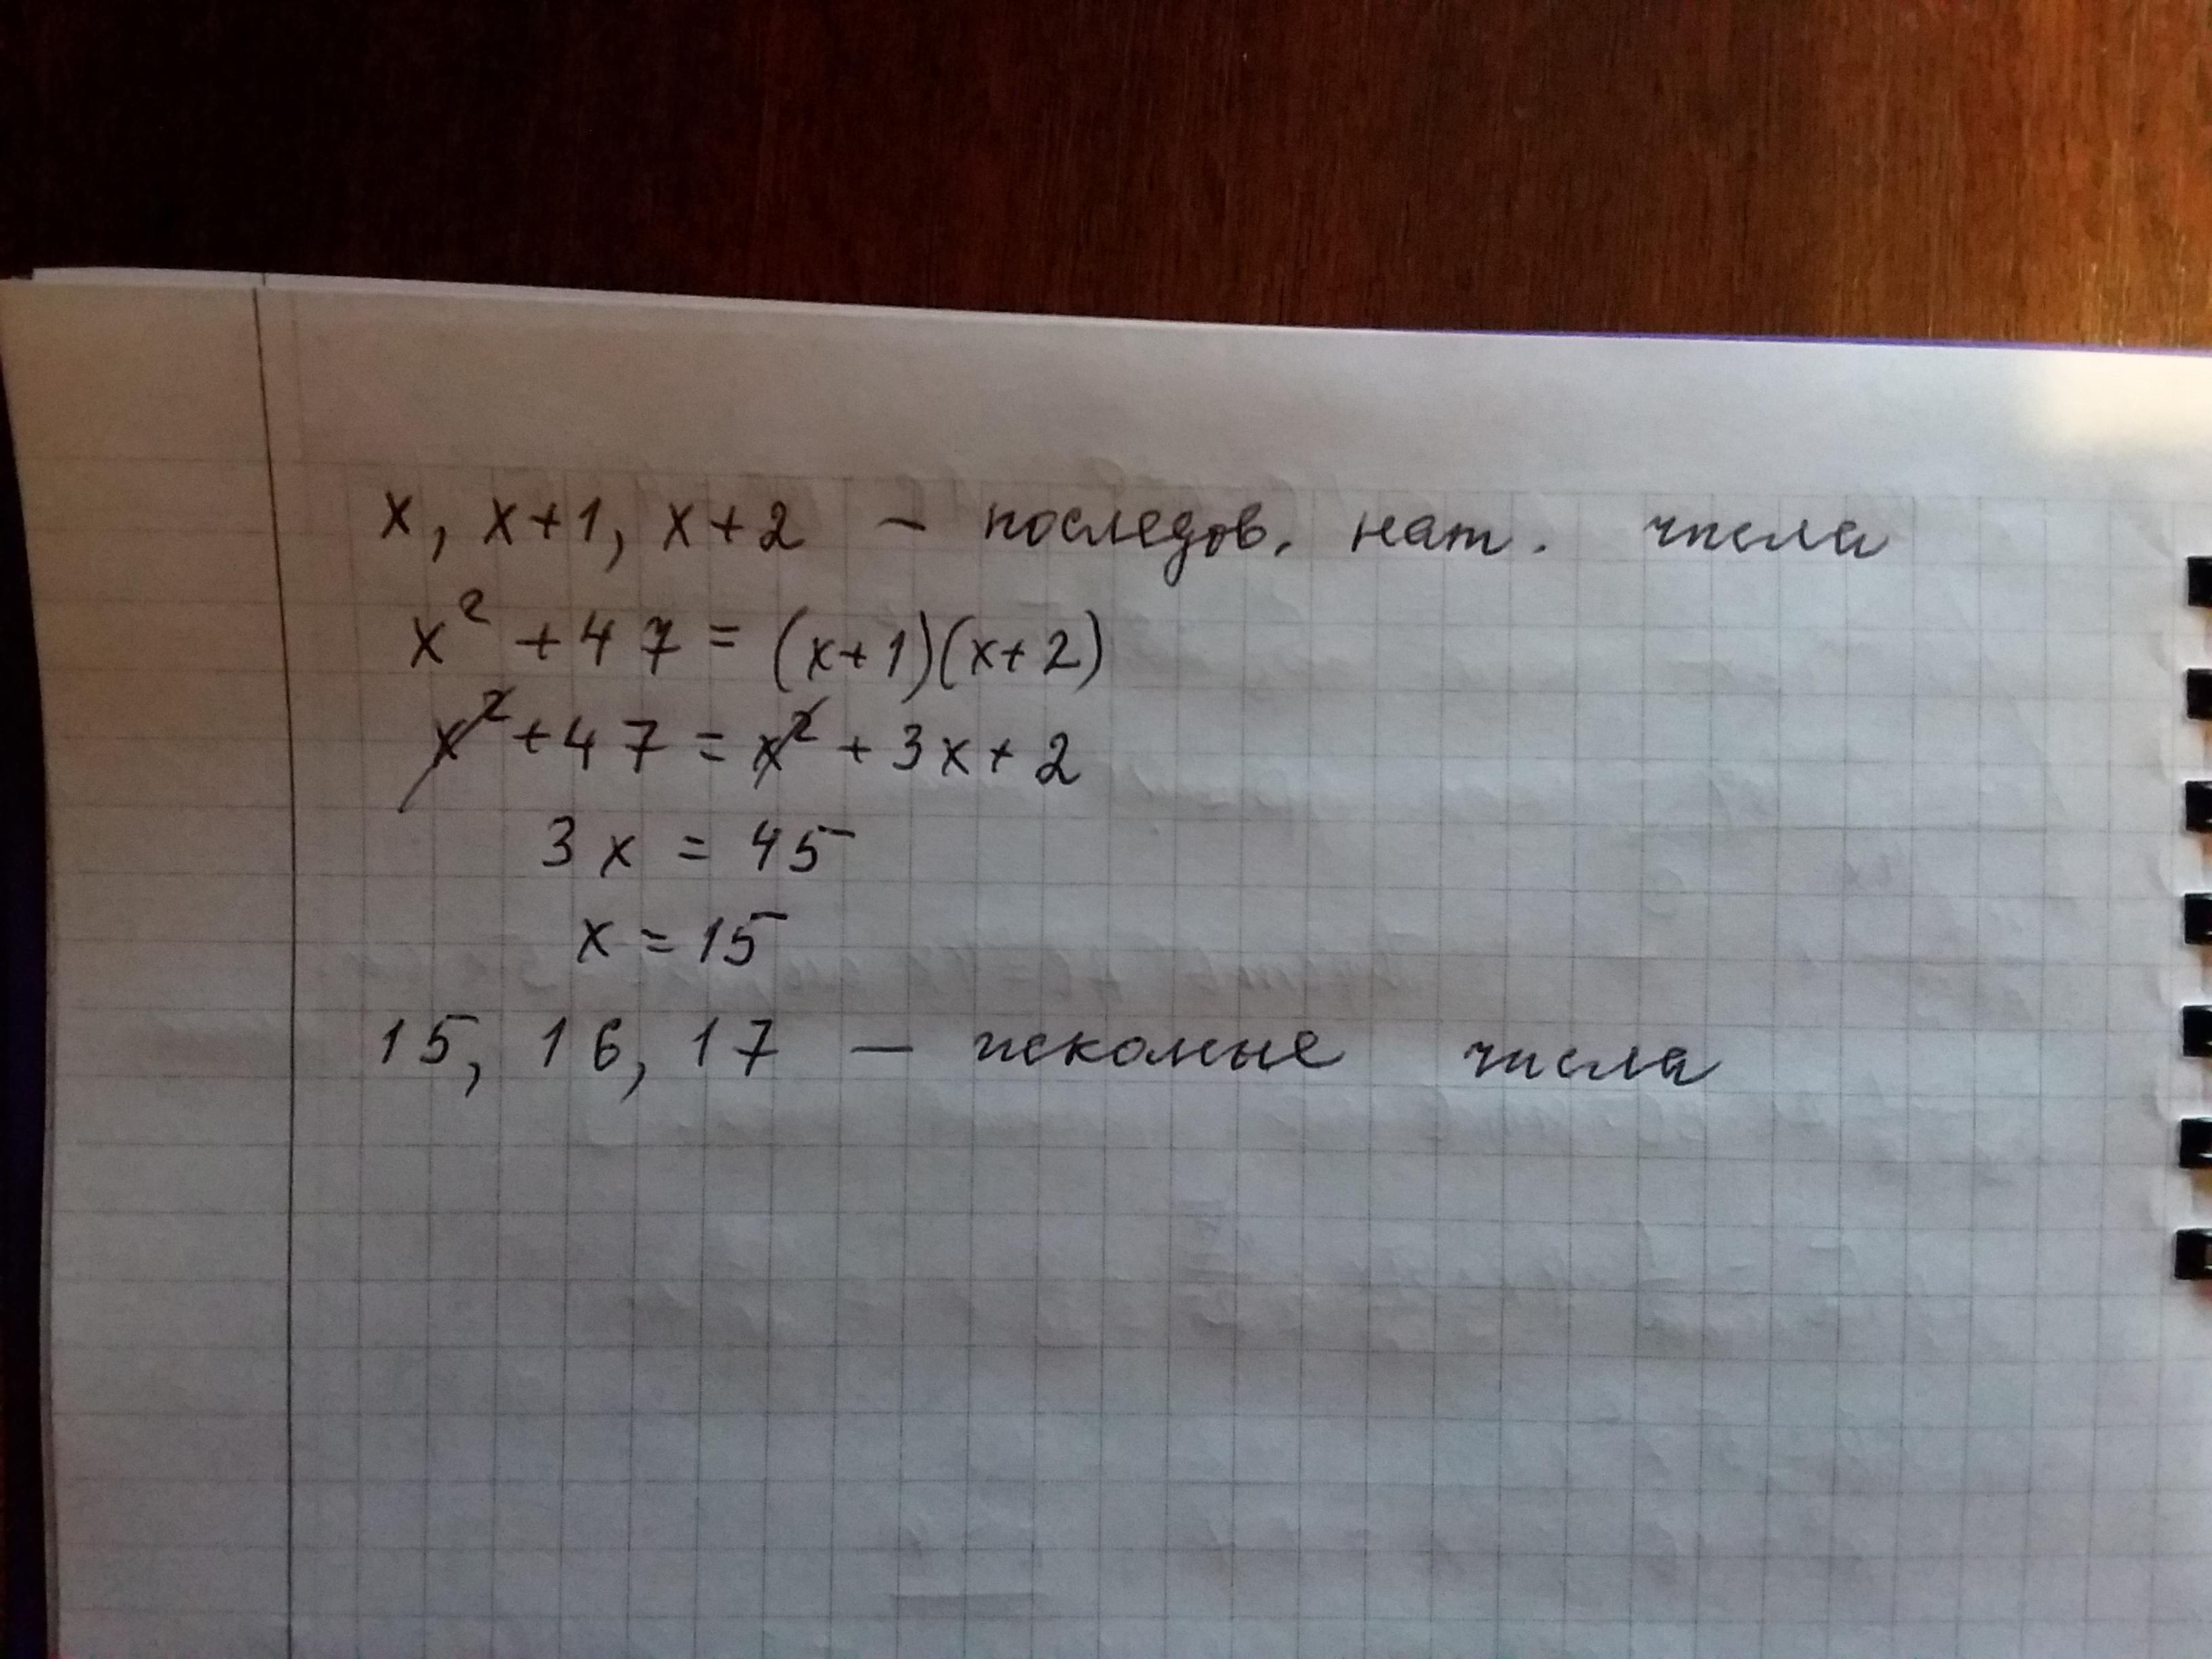 x, x+1, x+2 – последов. нат. числа
x² + 47 = (x+1)(x+2)
x² + 47 = x² + 3x + 2
3x = 45
x = 15
15, 16, 17 — искомые числа